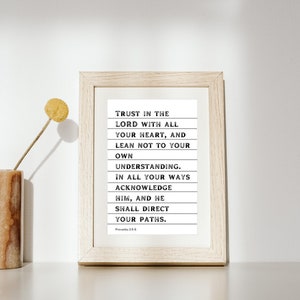 Trust in the
Lord with all
your heart, and
lean not to your
own
understanding.
In all your ways
acknowledge
him, and he
shall direct
your paths.
Proverbs 3:5-6